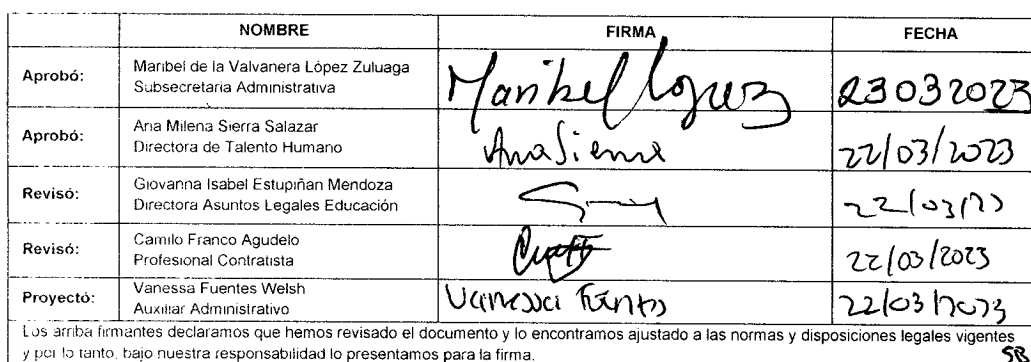 NOMBRE FIRMA FECHA
Aprobó: Maribel de la Valvanera López Zuluaga
Subsecretaria Administrativa
Maribel López 23032023
Aprobó: Ana Milena Sierra Salazar
Directora de Talento Humano
Ana Sierra 22/03/2023
Revisó: Giovanna Isabel Estupiñan Mendoza
Directora Asuntos Legales Educación
22/03/23
Revisó: Camilo Franco Agudelo
Profesional Contratista
22/03/2023
Proyectó: Vanessa Fuentes Welsh
Auxiliar Administrativo
Vanessa Fuentes 22/03/2023
Los arriba firmantes declaramos que hemos revisado el documento y lo encontramos ajustado a las normas y disposiciones legales vigentes
y por lo tanto, bajo nuestra responsabilidad lo presentamos para la firma.